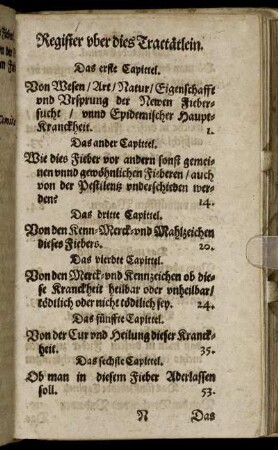 Register vber dies Tractätlein.
Das erste Capittel.
Von Wesen / Art / Natur / Eigenschafft
vnd Vrsprung der Newen Fieber-
sucht / vnnd Epidemischer Haupt-
Kranckheit. 1.
Das ander Capittel.
Wie dies Fieber vor andern sonst gemei-
nen vnnd gewöhnlichen Fieberen / auch
von der Pestilentz vnderschieden wer-
den? 14.
Das dritte Capittel.
Von den Kenn- Merck- vnd Mahlzeichen
dieses Fiebers. 20.
Das vierdte Capittel.
Von den Merck- vnd Kennzeichen ob die-
se Kranckheit heilbar oder vnheilbar /
tödtlich oder nicht tödtlich sey. 24.
Das fünffte Capittel.
Von der Cur vnd Heilung dieser Kranck-
heit. 35.
Das sechste Capittel.
Ob man in diesem Fieber Aderlassen
soll. 53.
N Das